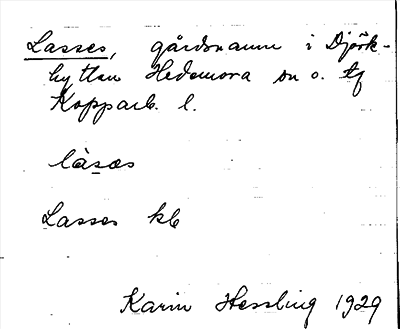 Lasses, gårdsnamn i Djörk-
hyttan Hedemora sn o. tg
Kopparb. l.
làsæs
Lasses kb
Karin Hessling 1929